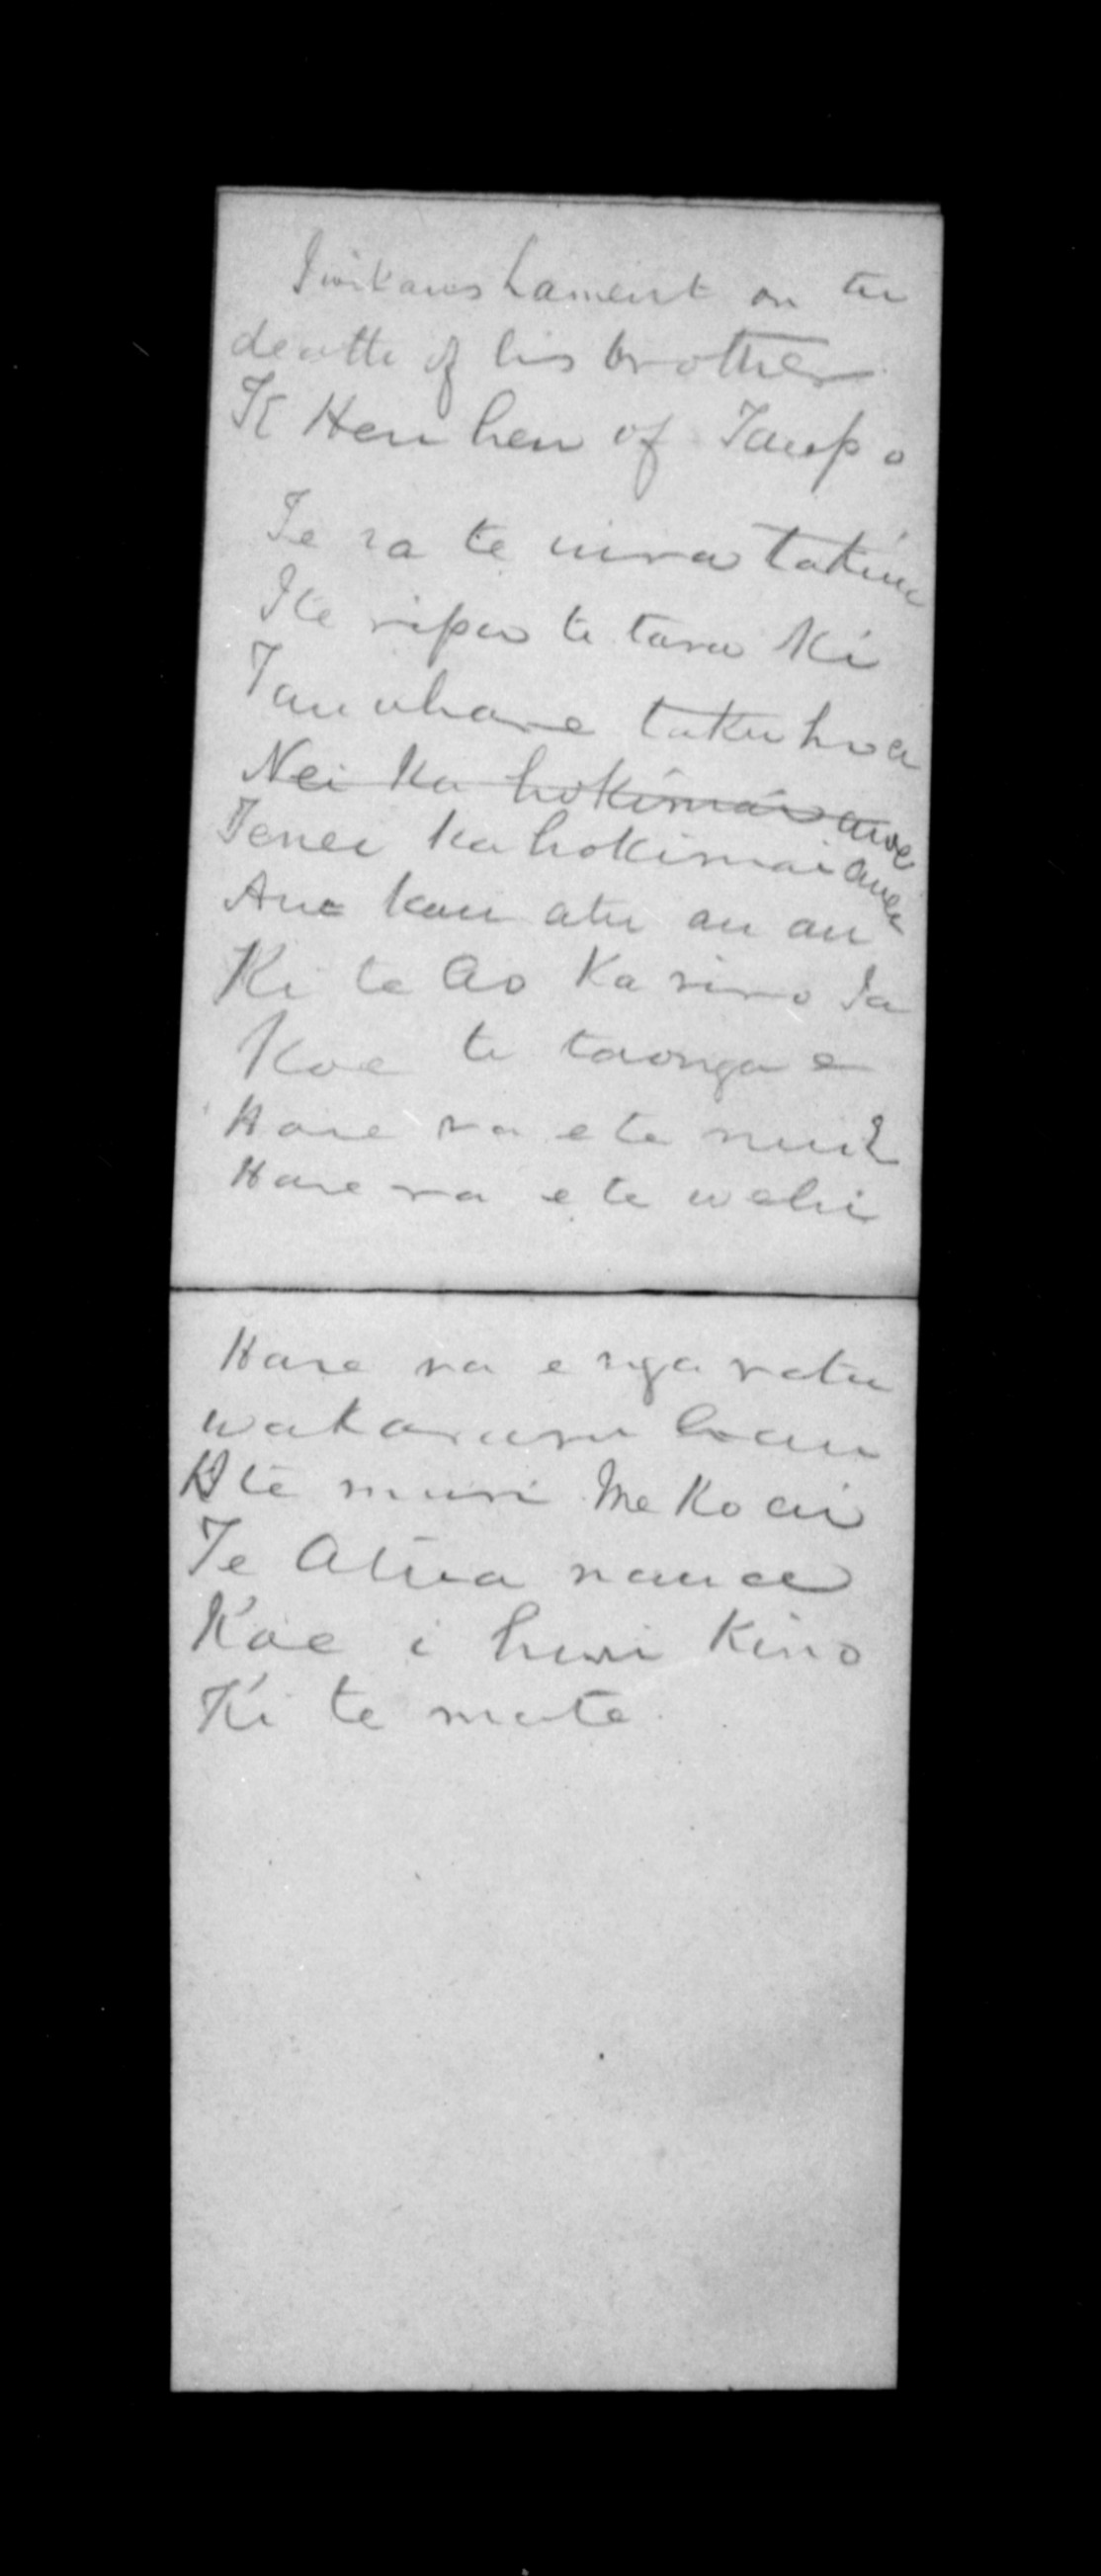 Iwikaus Lament on the
death of his brother
Te Heu heu of Taupo
Te ra te uira
I te ripa te tara ki
Tauwhare taku hoa
Nei ka hokimai aue
Tenei ka hokimai auei
Aue kau atu au au
Ki te Ao Ka riro Ia
Koe te taonga e
Haere ra e te nui
Haere ra e te wehi
Haere ra e nga ratu
wakaruru hau
te muri Me Ko ai
Te Atua nana
Koe i huri Kino
Ki te mate